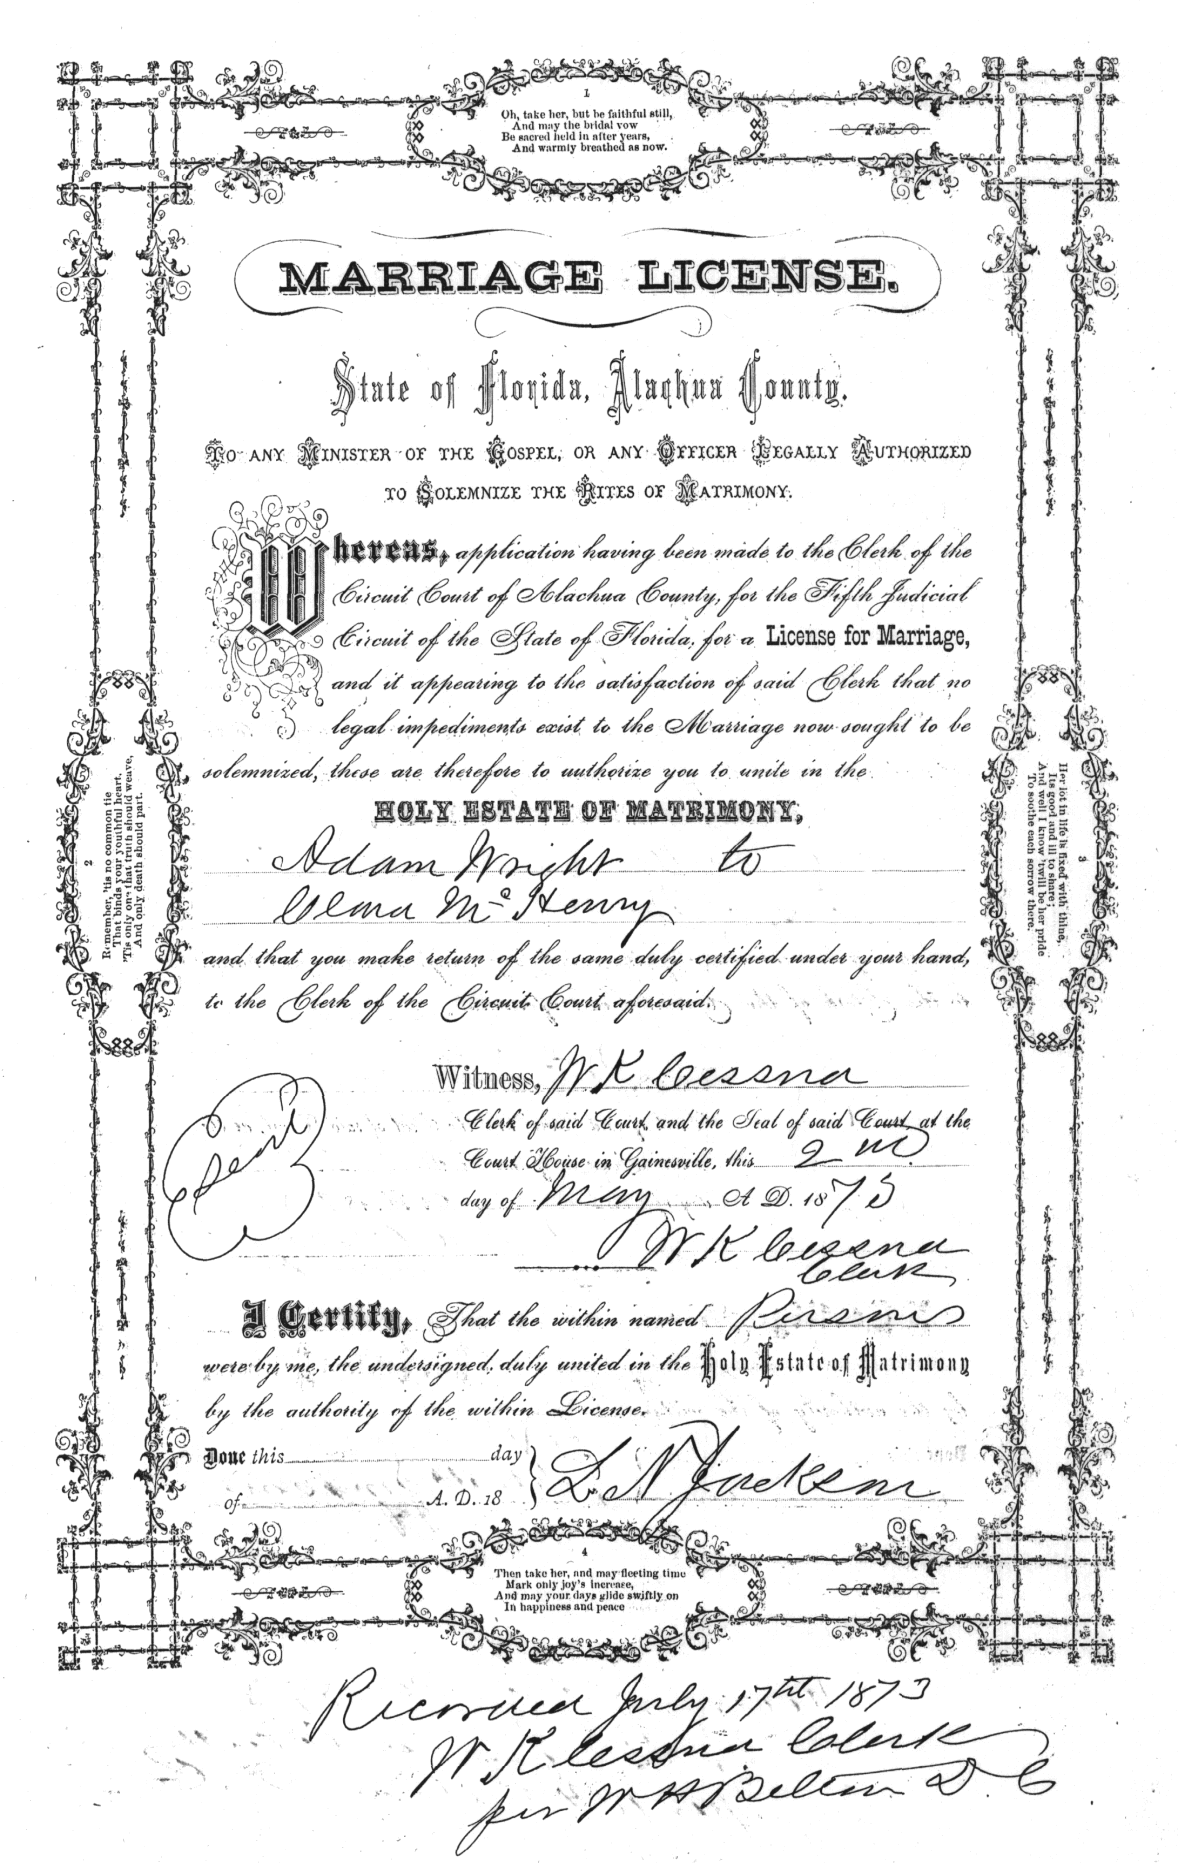 1
Oh, take her, but be faithful still,
And may the bridal vow
Be sacred held in after years,
And warmly breathed as now.
MARRIAGE LICENSE.
State of Florida, Alachua County.
TO ANY MINISTER OF THE GOSPEL, OR ANY OFFICER LEGALLY AUTHORIZED
TO SOLEMNIZE THE RITES OF MATRIMONY.
Whereas, application having been made to the Clerk of the
Circuit Court of Alachua County, for the Fifth Judicial
Circuit of the State of Florida, for a License for Marriage,
and it appearing to the satisfaction of said Clerk that no
legal impediments exist to the Marriage now sought to be
solemnized, these are therefore to authorize you to unite in the
HOLY ESTATE OF MATRIMONY,
Adam Wright to
McHenry
and that you make return of the same duly certified under your hand,
to the Clerk of the Circuit Court aforesaid.
2
Remember, 'tis no common tie
That binds your youthful heart,
'Tis only one that truth should weave,
And only death should part.
3
Her lot in life is fixed with thine,
Its good and ill to share;
And well I know 'twill be her pride
To soothe each sorrow there.
Witness, W K Cessna
Clerk of said Court, and the Seal of said Court, at the
Court House in Gainesville, this 2nd
day of May A. D. 1873
Seal
W K Cessna
Clerk
I Certify, That the within named Persons
were by me, the undersigned, duly united in the Holy Estate of Matrimony
by the authority of the within License.
Done this day
of A. D. 18
L N Jackson
4
Then take her, and may fleeting time
Mark only joy's increase,
And may your days glide swiftly on
In happiness and peace
Recorded July 17th 1873
W K Cessna Clerk
per W H Belton D. C